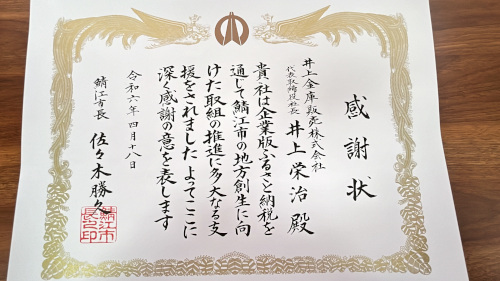 感謝状
井上金庫販売株式会社
代表取締役社長 井上栄治 殿
貴社は企業版ふるさと納税を
通じて鯖江市の地方創生に向
けた取組の推進に多大なる支
援をされました よってここに
深く感謝の意を表します
令和六年四月十八日
鯖江市長 佐々木勝久
鯖江市
長之印